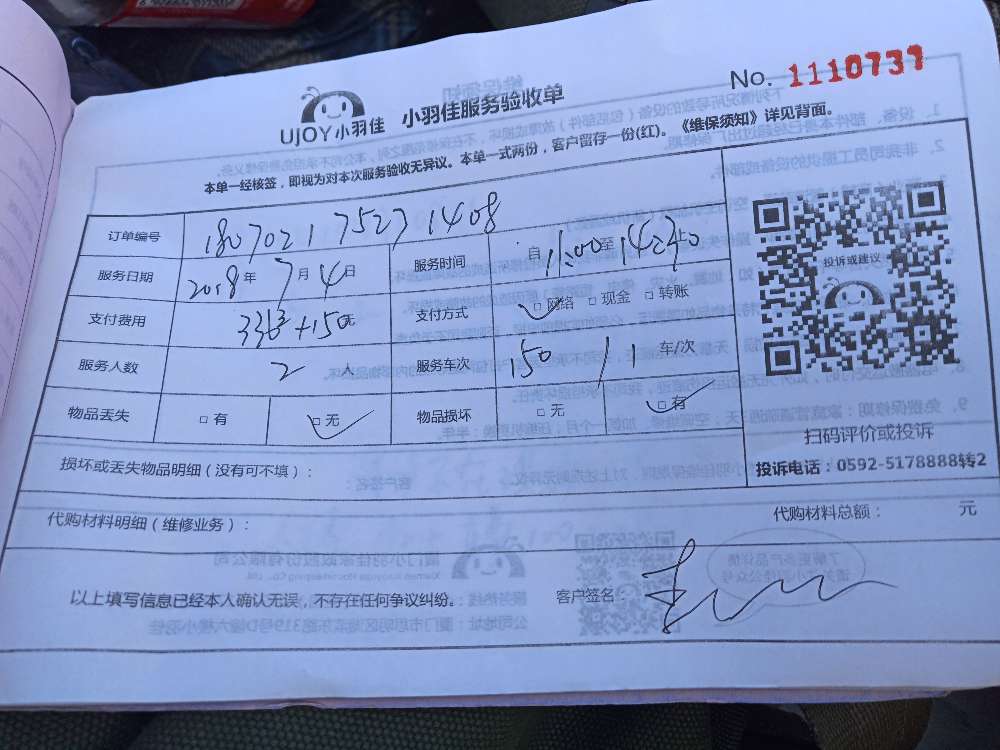 No. 1110737
UJOY小羽佳 小羽佳服务验收单
本单一经核签，即视为对本次服务验收无异议。本单一式两份，客户留存一份(红)。《维保须知》详见背面。
订单编号 180702175271408
服务日期 2018年 7月 4日 服务时间 自 11:00至
支付费用 元 支付方式 □网络 □现金 □转账
服务人数 2 人 服务车次 150 / 1 车/次
物品丢失 □有 □无 物品损坏 □无 □有
投诉或建议
扫码评价或投诉
投诉电话：0592-5178888转2
损坏或丢失物品明细（没有可不填）：
代购材料明细（维修业务）： 代购材料总额： 元
以上填写信息已经本人确认无误，不存在任何争议纠纷。 客户签名：